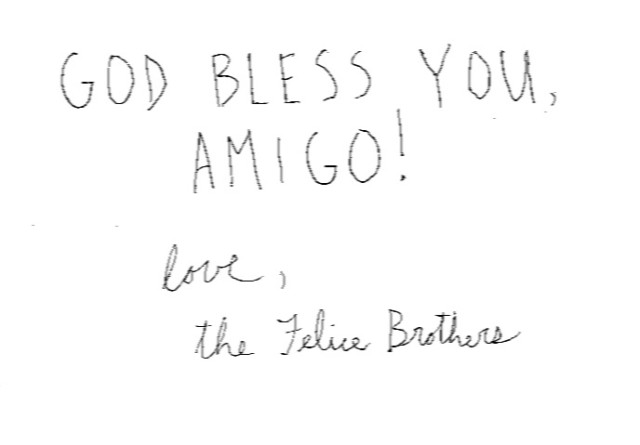 GOD BLESS YOU,
AMIGO!
love,
the Felice Brothers